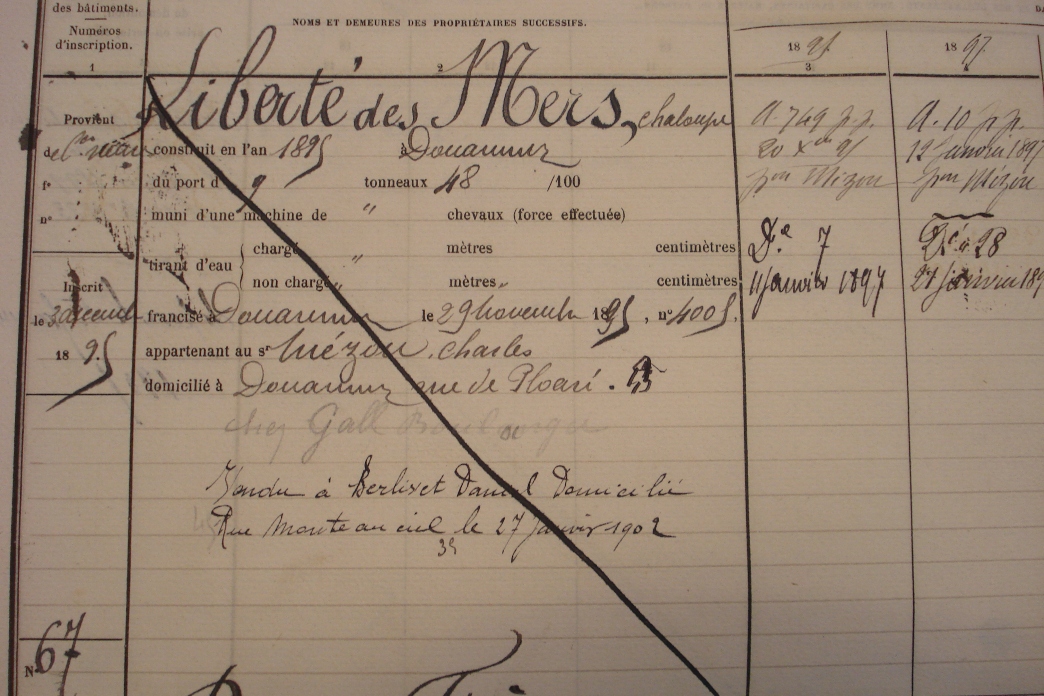 des bâtiments.
Numéros
d'inscription.
1
NOMS ET DEMEURES DES PROPRIÉTAIRES SUCCESSIFS.
2
1895
3
1897
4
Liberté des Mers, chaloupe
Provient
de
construit en l'an 1895 à Douarnenez
fº
du port d 9 tonneaux 48 /100
nº
muni d'une machine de " chevaux (force effectuée)
tirant d'eau
chargé " mètres centimètres
non chargé " mètres " centimètres
Inscrit
le 3 décembre
1895
francisé à Douarnenez le 29 Novembre 1895, nº 4005.
appartenant au sr Mézou Charles
domicilié à Douarnenez rue de Ploaré.
chez Gall Boulanger
Vendu à Berlivet Daniel Domicilié
Rue Monte au ciel le 27 Janvier 1902
35
A. 749 p.p.
20 Xbre 95
pon Mézou
Dé 7
11 Janvier 1897
A. 10 p.p.
12 Janvier 1897
pon Mézou
Dé à 28
27 Janvier 189
N 67